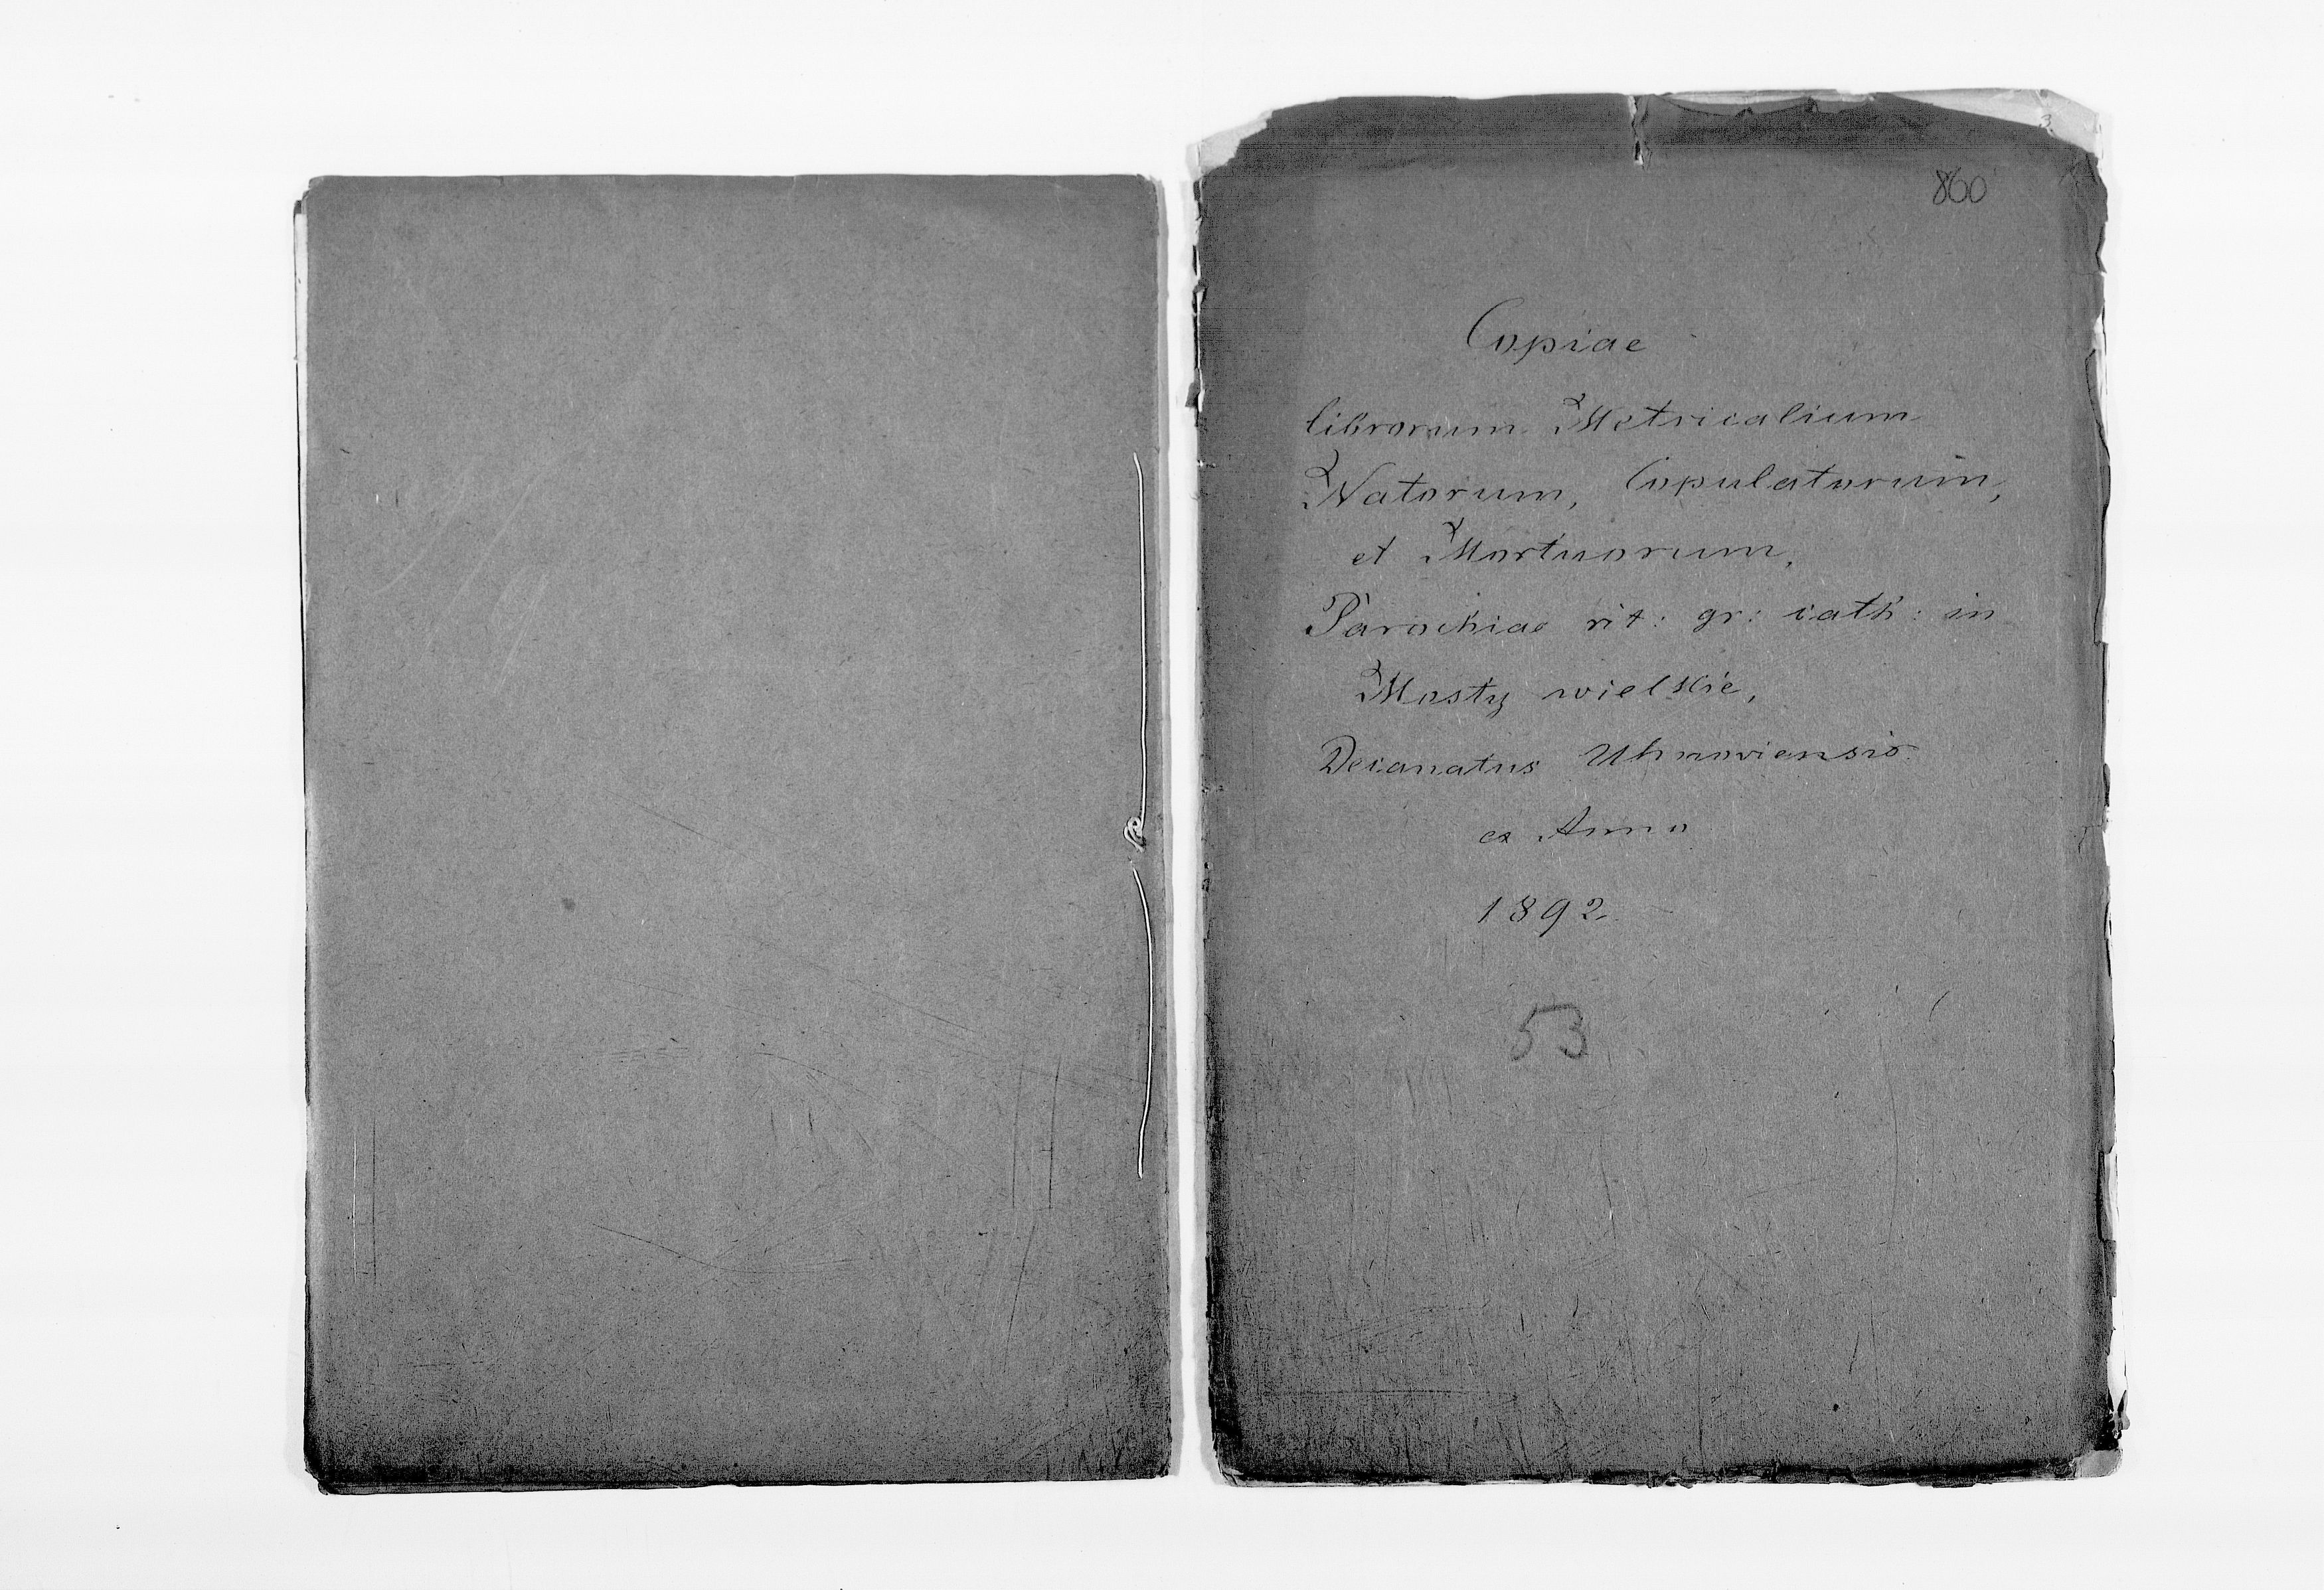 3.
860
Copiae
librorum Metricalium
Natorum, Copulatorum,
et Mortuorum,
Parochiae rit: gr: cath: in
Mosty wielkie,
Decanatus Uhnoviensis
ex Anno
1892.
53